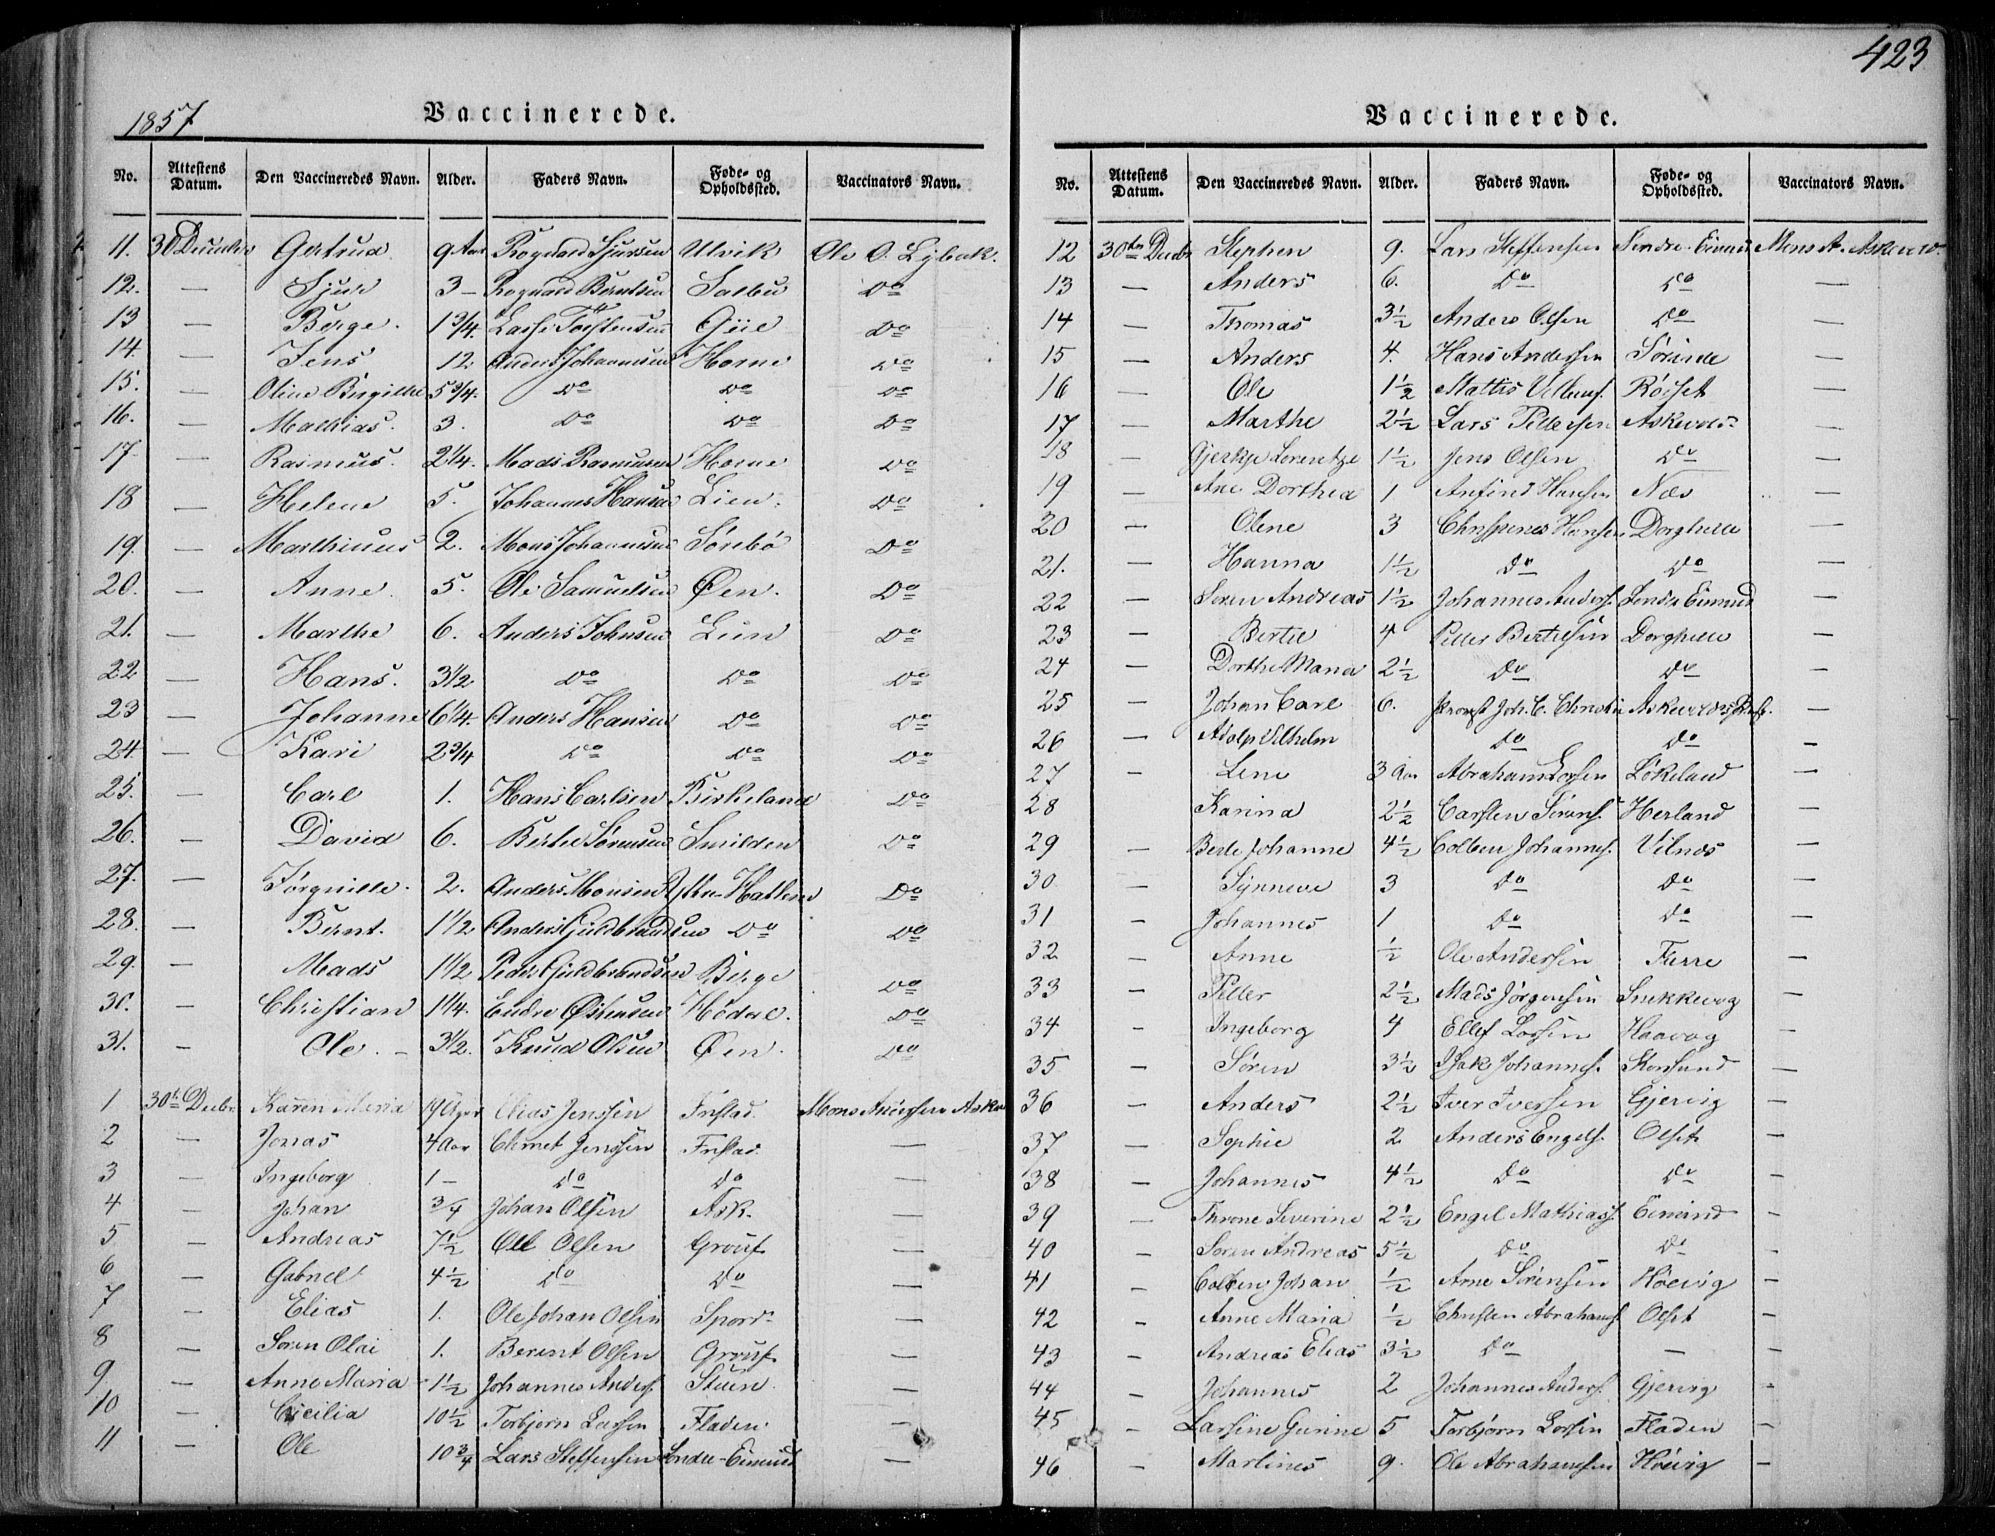 423
1857 Vaccinerede.
No. Attestens Datum. Den Vaccineredes Navn. Alder. Faders Navn. Føde- og Opholdssted. Vaccinators Navn.
11. 30 Gertrud 9 Aar Rognald Sjursen Ulvik Ole O. Lybæk.
12. — Sjur 3 — Rognald Berntsen Salbu Do
13 — Børge. 1 3/4. Lasse Torstensen Giie Do
14. — Jens 12. Anders Johannesen Horne Do
15. — Oline Birgitthe 5 3/4. Do Do Do
16. — Mathias. 3. Do Do Do
17. — Rasmus. 2 1/4. Mads Rasmussen Horne Do
18 — Helene 5. Johannes Hansen Lien. Do
19. — Marthinus 2. Mons Johannesen Sørebø Do
20. — Anne. 5. Ole Samuelsen Øen. Do
21. — Marthe 6. Anders Johnsen Lien Do
22 — Hans. 3 1/2 Do Do Do
23 — Johanne 6 1/4. Anders Hansen Do Do
24. — Kari 2 3/4 Do Do Do
25. — Carl 1. Hans Carlsen Birkeland Do
26. — David 6. Bertel Sørensen Smilden Do
27. — 2. Anders Monsen Ytre-Hatlem Do
28. — Bernt. 1 1/2 Anders Guldbrandsen Do Do
29. — Mads 1 1/2 Peder Guldbrandsen Birge Do
30. — Christian 1 1/4. Endre Østensen Hødal. Do
31. — Ole. — 3 1/2. Knud Olsen Øen. Do
1 30te Decbr Karen Maria Elias Jenssen Fristad. Mons Andersen
2 — Jonas 4 Aar Clemet Jenssen Fristad. —
3 — Ingeborg 1 — Do Do —
4 — Johan 3/4 Johan Olsen Ask. —
5 — Andreas 7 1/2 Ole Olsen —
6 — Gabriel 4 1/2 Do Do —
7 — Elias 1. Ole Johan Olsen —
8 — Soren Olai 1. Berent Olsen —
9 — Anne Maria 1 1/2 Johannes Anders. Stuen. —
10 — Cicilia 10 1/2 Torbjorn Larsen Fladen —
11 — Ole 10 3/4 Lars Steffensen Sondre-Eimind —
Vaccinerede.
No. Attestens Datum. Den Vaccineredes Navn. Alder. Faders Navn. Føde- og Opholdssted. Vaccinators Navn.
12 30te Decbr Stephen 9. Lars Steffensen Mons A. Askevold.
13 — Anders 6. Do Do —
14 — Thomas 3 1/2 Anders Olsen Do —
15 — Anders 4. Hans Andersen Sørinde —
16 — Ole 1 1/2 Mattis Røiset —
17 — Marthe 2 1/2 Lars Pettersen Askevold —
18 — Lorentze 1 1/2 Jens Olsen Do —
19 — Ane Dorthea 1 Anfind Hansen Næs —
20 — Olene 3 Hansen Dorghelle —
21. — Hanna 1 1/2 Do Do —
22 — Soren Andreas 1 1/2 Johannes Anders. —
23 — Bertel 4 Petter Bertelsen Dorghelle —
24 — Dorthe Maria 2 1/2 Do Do —
25 — Johan Carl 6. Provst Joh. C. Christie —
26 — Adolp Vilhelm Do Do —
27 — Lene 3 Aar Abraham Larsen Løkeland —
28 — Karina 2 1/2 Carsten Sørens. Herland —
29 — Berte Johanne 4 1/2 Colben Johannes. Vilnæs —
30 — Synneve 3 Do Do —
31 — Johannes 1 Do Do —
32 — Anne 1/2 Ole Andersen Furre —
33 — Petter 2 1/2 Mads Jørgensen Snekkevog —
34 — Ingeborg 4 Ellef Larsen Haavog —
35 — Søren 3 1/2 Isak Johannes. Korssund —
36 — Anders 2 1/2 Iver Iversen Gjervig —
37 — Sophie 2 Anders Engels. Olset —
38 — Johannes 4 1/2 Do Do —
39 — Throne Severine 2 1/2 Engel Mathiass. Eimind —
40 — Soren Andreas 5 1/2 Do Do —
41 — Colben Johan 1/2 Arne Sørensen Høevig —
42 — Anne Maria 1/2 Christen Abrahams. Olset —
43 — Andreas Elias 3 1/2 Do — —
44 — Johannes 2 Johannes Anders. Gjervig —
45 — Larsine Gurine 5 Torbjørn Larsen Fladen —
46 — Martines 9. Ole Abrahamsen Høevig —